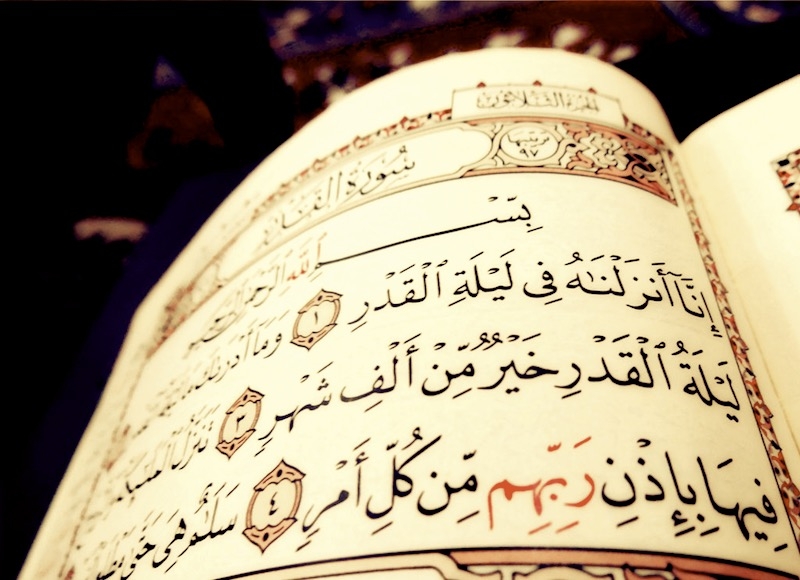 الجزء الثلاثون
ترتيبها ٩٧
سُورَةُ القَدْرِ
بِسْمِ ٱللَّهِ ٱلرَّحْمَٰنِ ٱلرَّحِيمِ
إِنَّآ أَنزَلْنَٰهُ فِى لَيْلَةِ ٱلْقَدْرِ ١ وَمَآ أَدْرَىٰكَ
لَيْلَةُ ٱلْقَدْرِ خَيْرٌ مِّنْ أَلْفِ شَهْرٍ ٣ تَنَزَّلُ ٱلْمَلَٰٓئِكَةُ
فِيهَا بِإِذْنِ رَبِّهِم مِّن كُلِّ أَمْرٍ ٤ سَلَٰمٌ هِىَ حَتَّىٰ